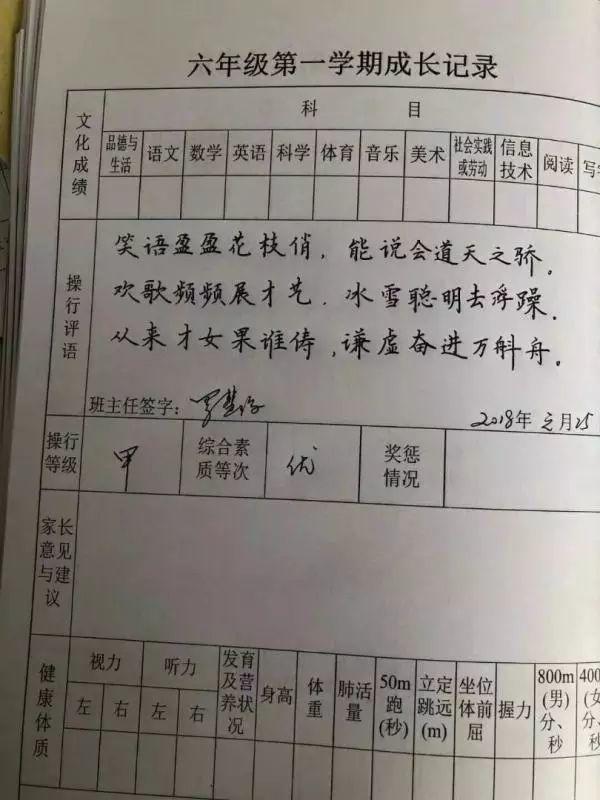 六年级第一学期成长记录
文化成绩
科 目
品德与生活 语文 数学 英语 科学 体育 音乐 美术 社会实践或劳动 信息技术 阅读 写字
操行评语
笑语盈盈花枝俏，能说会道天之骄。
欢歌频频展才艺．冰雪聪明去浮躁．
从来才女果谁俦，谦虚奋进万斛舟。
班主任签字：
2018年元月25
操行等级 甲 综合素质等次 优 奖惩情况
家长意见与建议
健康体质
视力 听力 发育及营养状况 身高 体重 肺活量 50m跑(秒) 立定跳远(m) 坐位体前屈 握力 800m(男)分、秒 400(女分、秒
左 右 左 右